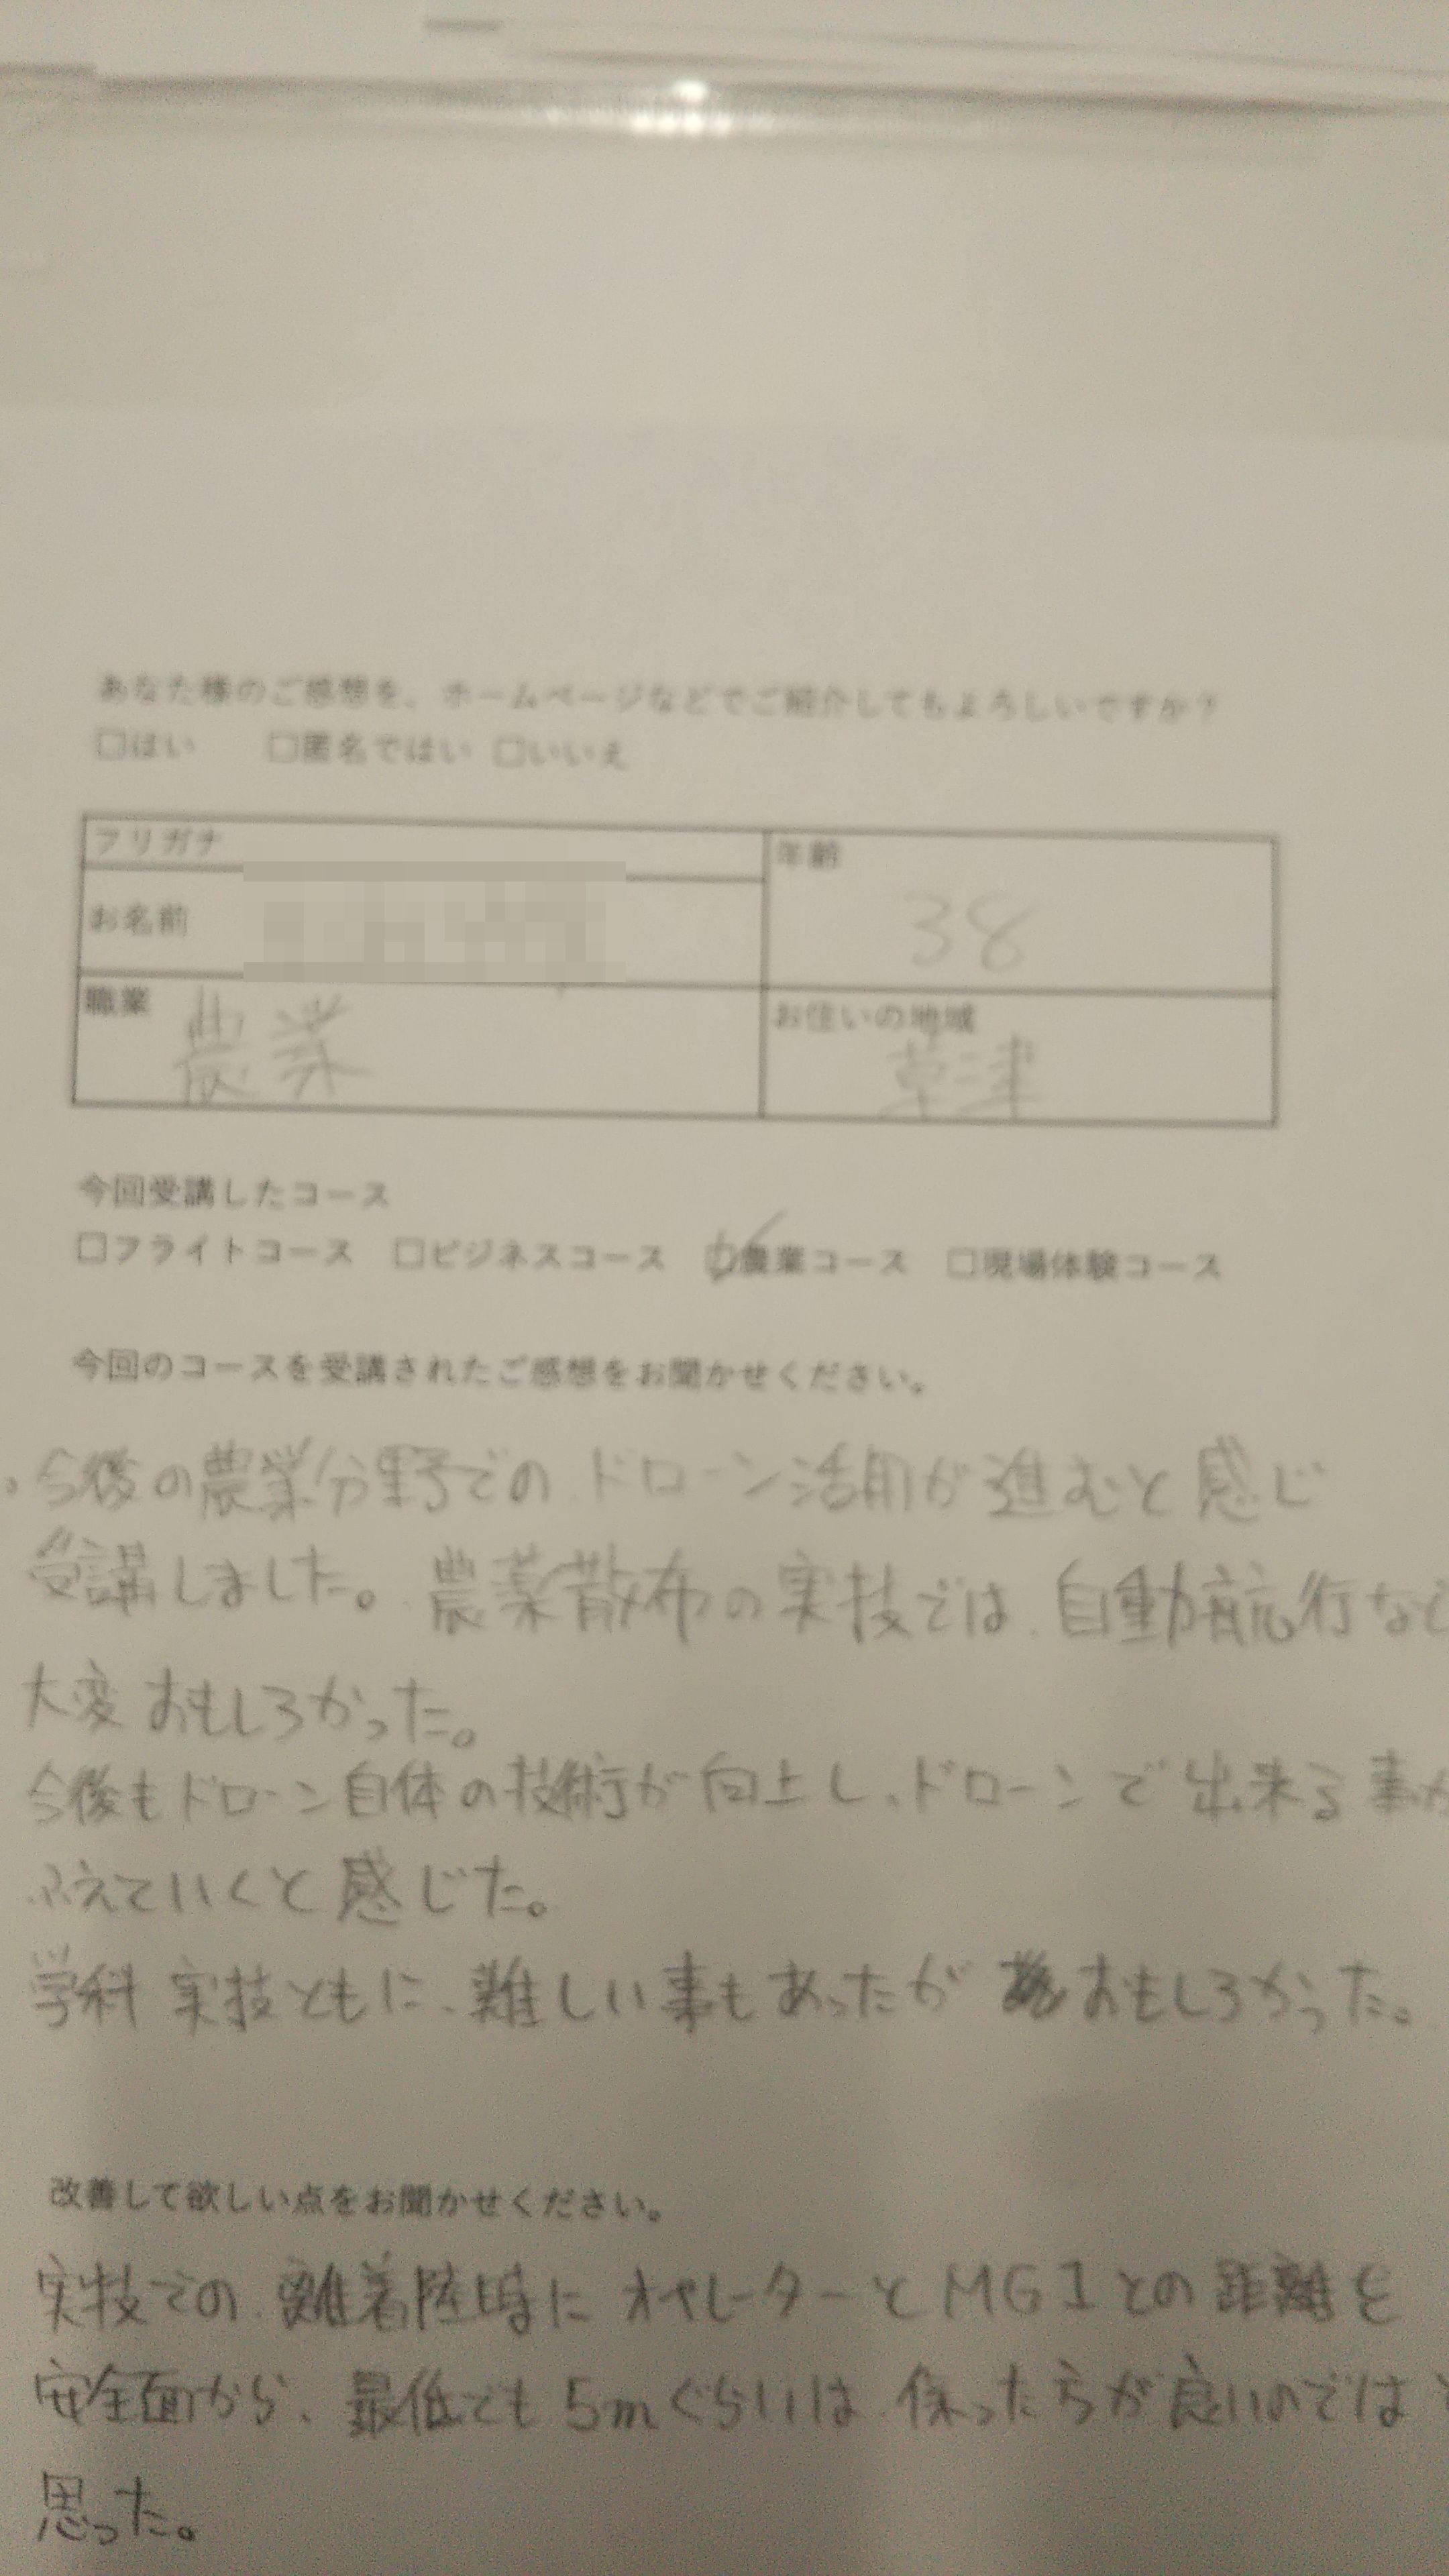 あなた様のご感想を、ホームページなどでご紹介してもよろしいですか？
□はい □匿名ではい □いいえ
フリガナ
年齢
お名前
38
職業
農業
お住いの地域
草津
今回受講したコース
□フライトコース □ビジネスコース ☑農業コース □現場体験コース
今回のコースを受講されたご感想をお聞かせください。
今後の農業分野でのドローン活用が進むと感じ
受講しました。農薬散布の実技では、自動航行など
大変おもしろかった。
今後もドローン自体の技術が向上し、ドローンで出来る事が
ふえていくと感じた。
学科実技ともに、難しい事もあったがおもしろかった。
改善して欲しい点をお聞かせください。
実技での離着陸時にオペレーターとMG1との距離を
安全面から、最低でも5mぐらいは保ったほうが良いのではと
思った。